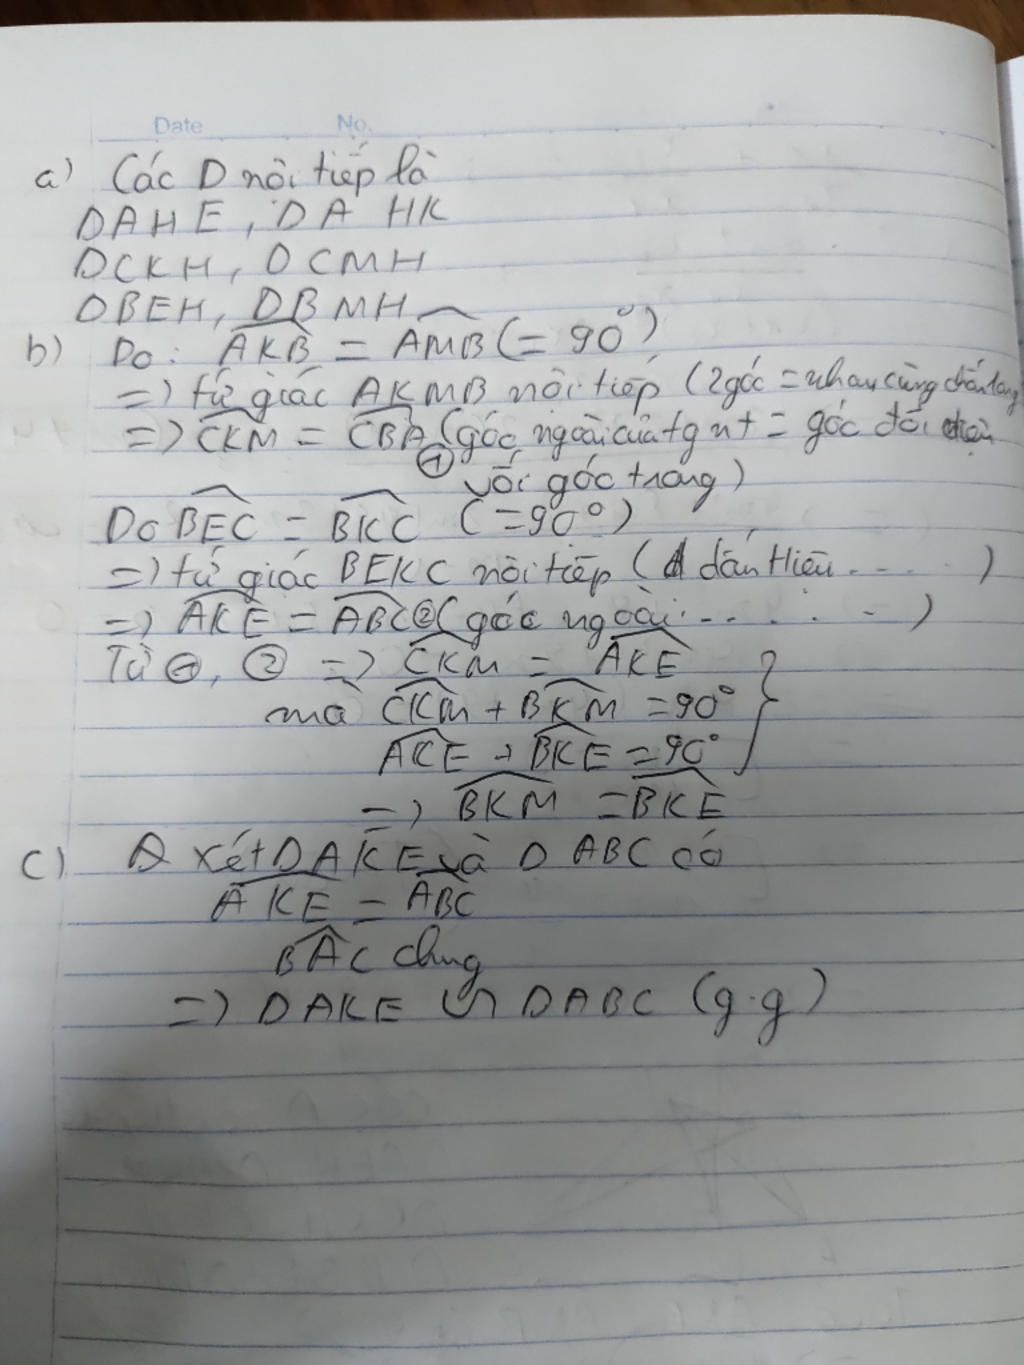 Date No.
a) Các D nội tiếp là
DAHE, DAHK
DCKH, DCMH
DBEH, DBMH
b) Do: AKB = AMB (= 90°)
=> tứ giác AKMB nội tiếp (2 góc = nhau cùng chắn
=> CKM = CBA ① (góc ngoài của tg nt = góc đối diện
với góc trong)
Do BEC = BKC (=90°)
=> tứ giác BEKC nội tiếp ( dấu hiệu .... )
=> AKE = ABC ② (góc ngoài ..... )
Từ ①, ② => CKM = AKE
mà CKM + BKM = 90° }
AKE + BKE = 90°
=> BKM = BKE
c) xét DAKE và D ABC có
AKE = ABC
BAC chung
=> DAKE ∽ DABC (g.g)